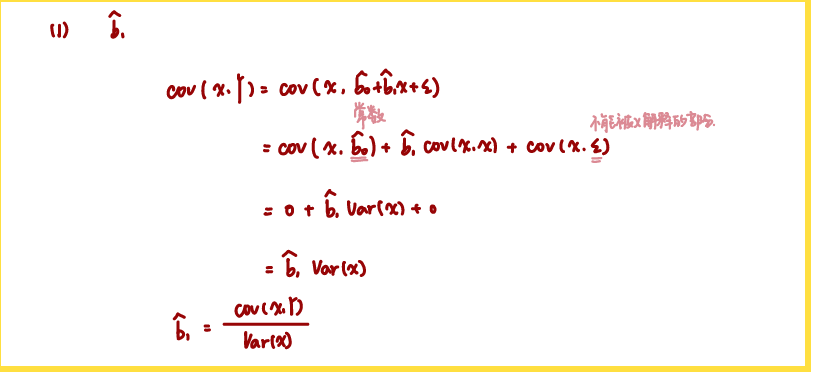 (1) b̂₁
cov(x.Y) = cov(x. b̂₀+b̂₁x+ε)
常数
不能被x解释的部分.
= cov(x. b̂₀) + b̂₁ cov(x.x) + cov(x. ε)
= 0 + b̂₁ Var(x) + 0
= b̂₁ Var(x)
b̂₁ = cov(x.Y) / Var(x)